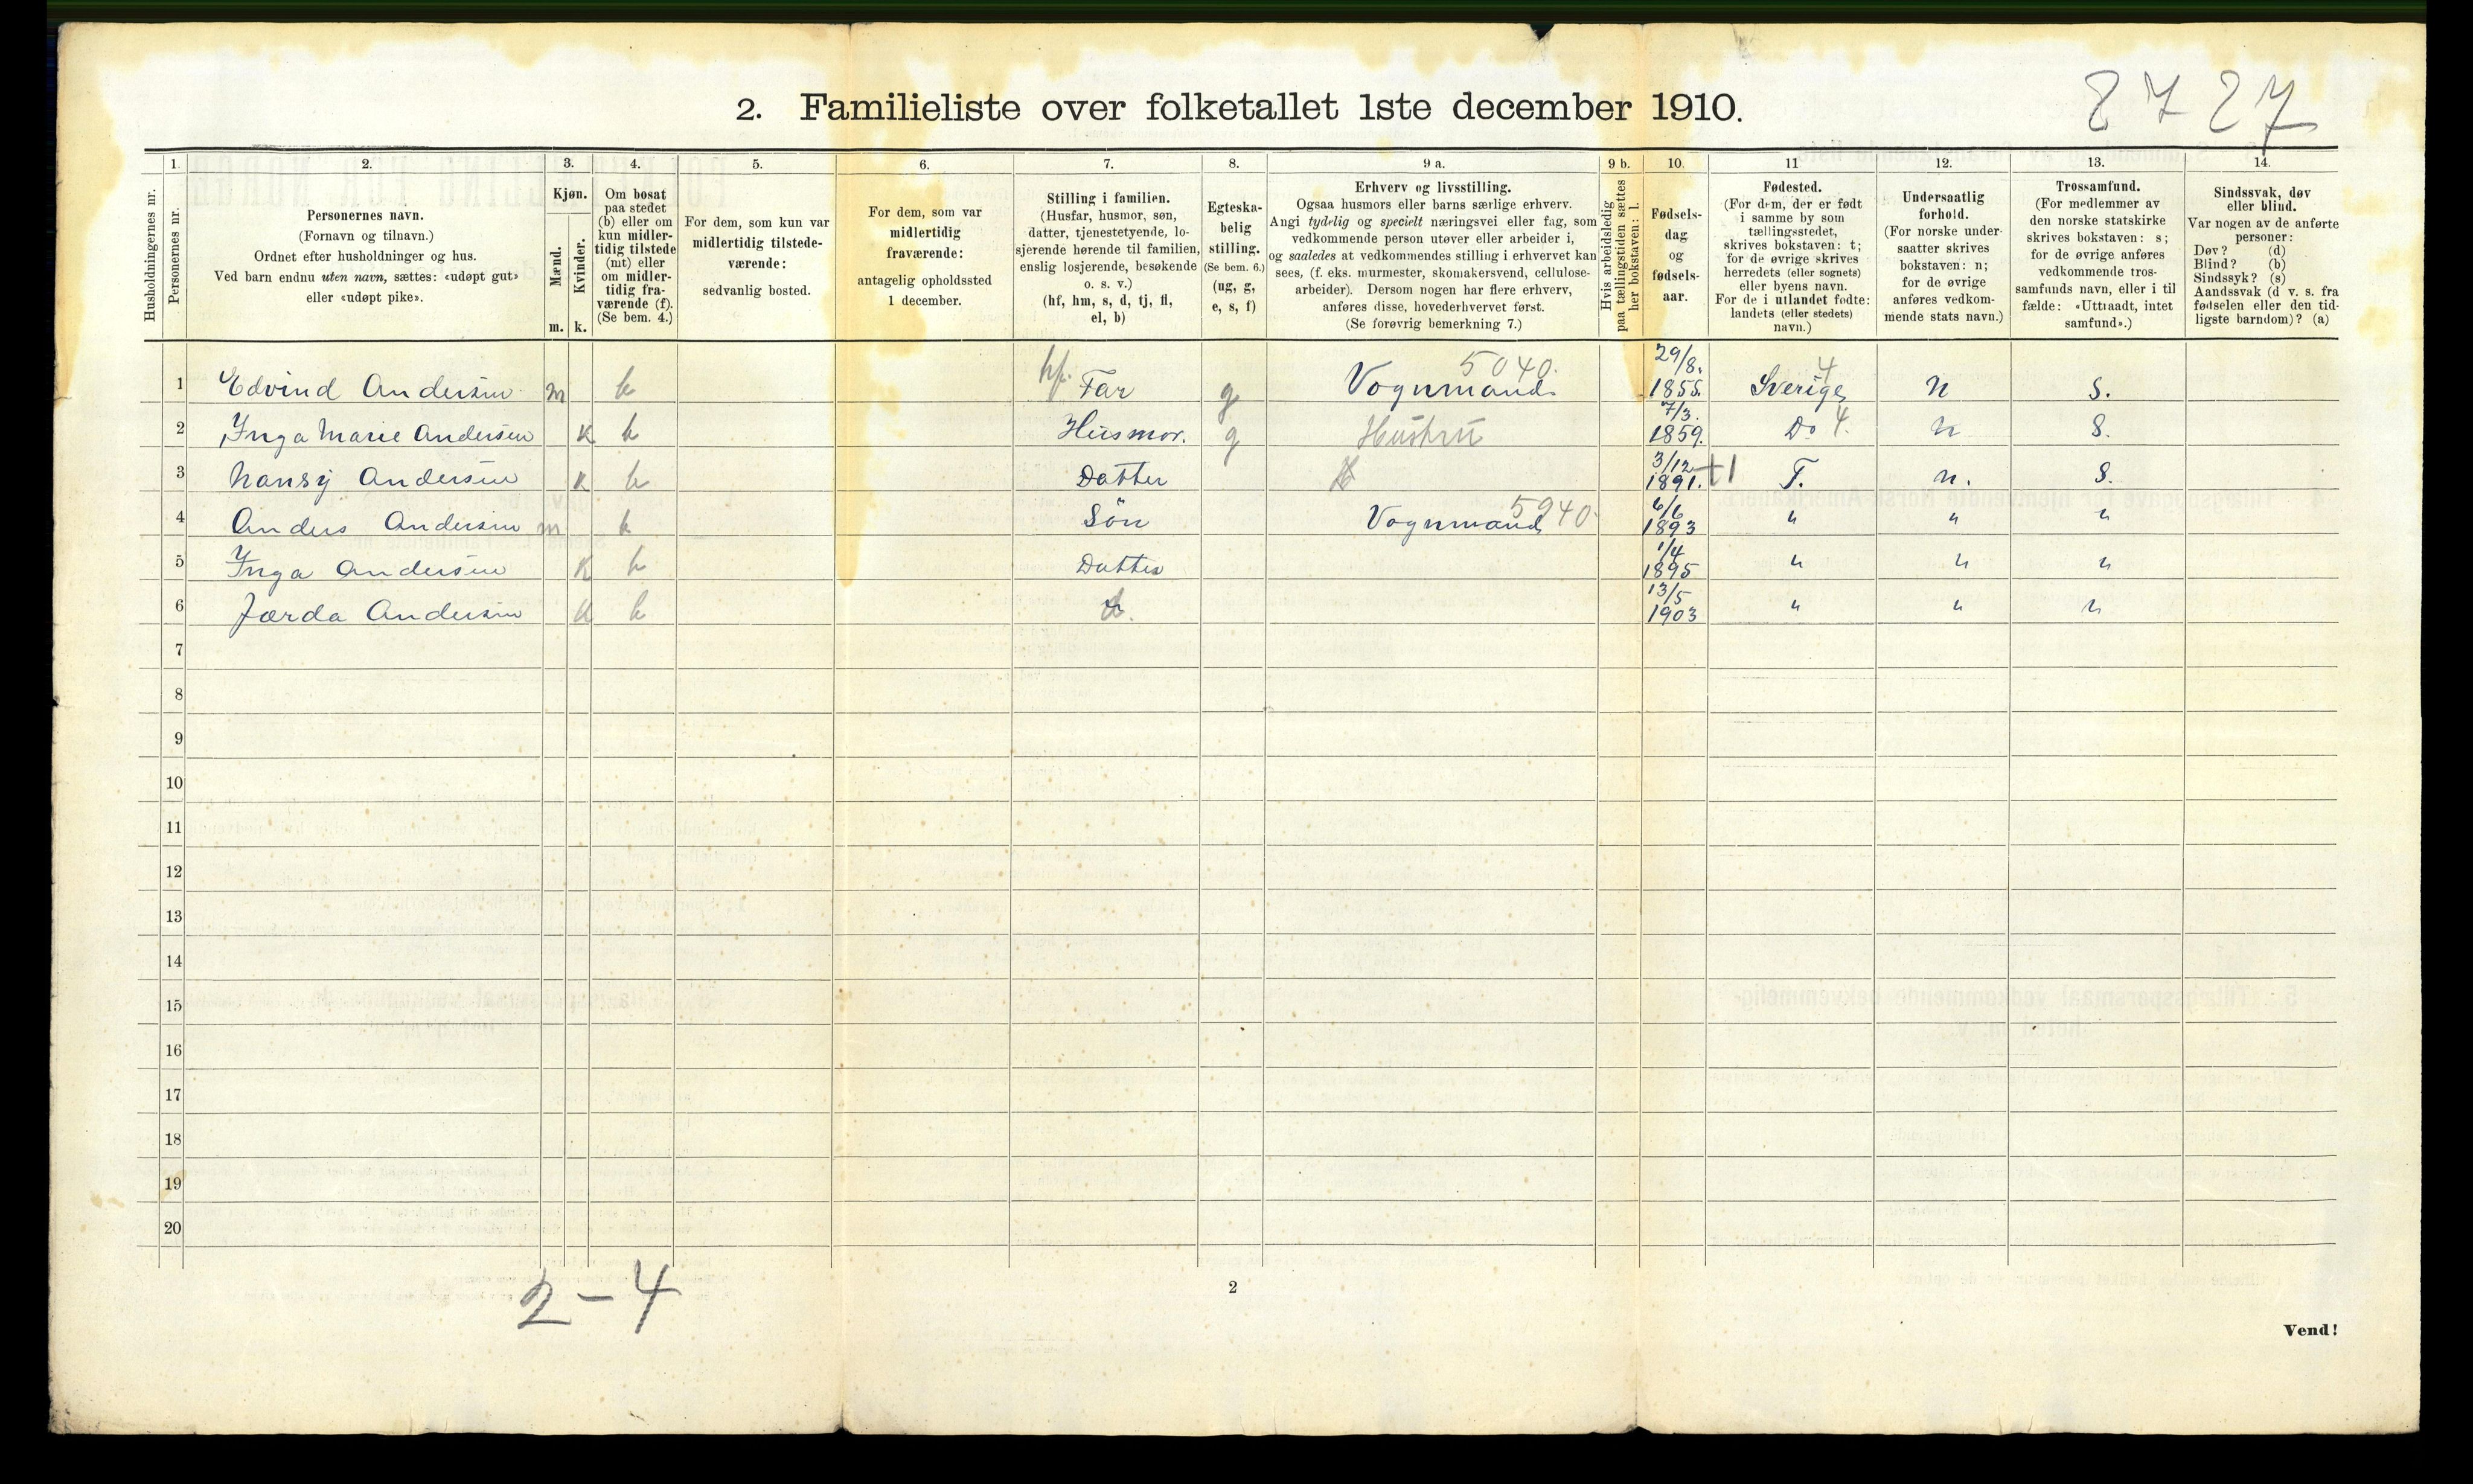 2. Familieliste over folketallet 1ste december 1910.
8727
1. 2. 3. 4. 5. 6. 7. 8. 9 a. 9 b. 10. 11 12. 13. 14.
Husholdningernes nr.
Personernes nr.
Personernes navn.
(Fornavn og tilnavn.)
Ordnet efter husholdninger og hus.
Ved barn endnu uten navn, sættes: «udøpt gut»
eller «udøpt pike».
Kjøn.
Mænd.
Kvinder.
m. k.
Om bosat
paa stedet
(b) eller om
kun midler-
tidig tilstede
(mt) eller
om midler-
tidig fra-
værende (f).
(Se bem. 4.)
For dem, som kun var
midlertidig tilstede-
værende:
sedvanlig bosted.
For dem, som var
midlertidig
fraværende:
antagelig opholdssted
1 december.
Stilling i familien.
(Husfar, husmor, søn,
datter, tjenestetyende, lo-
sjerende hørende til familien,
enslig losjerende, besøkende
o. s. v.)
(hf, hm, s, d, tj, fl,
el, b)
Egteska-
belig
stilling.
(Se bem. 6.)
(ug, g,
e, s, f)
Erhverv og livsstilling.
Ogsaa husmors eller barns særlige erhverv.
Angi tydelig og specielt næringsvei eller fag, som
vedkommende person utøver eller arbeider i,
og saaledes at vedkommendes stilling i erhvervet kan
sees, (f. eks. murmester, skomakersvend, cellulose-
arbeider). Dersom nogen har flere erhverv,
anføres disse, hovederhvervet først.
(Se forøvrig bemerkning 7.)
Hvis arbeidsledig
paa tællingstiden sættes
her bokstaven: l.
Fødsels-
dag
og
fødsels-
aar.
Fødested.
(For dem, der er født
i samme by som
tællingsstedet,
skrives bokstaven: t;
for de øvrige skrives
herredets (eller sognets)
eller byens navn.
For de i utlandet fødte:
landets (eller stedets)
navn.)
Undersaatlig
forhold.
(For norske under-
saatter skrives
bokstaven: n;
for de øvrige
anføres vedkom-
mende stats navn.)
Trossamfund.
(For medlemmer av
den norske statskirke
skrives bokstaven: s;
for de øvrige anføres
vedkommende tros-
samfunds navn, eller i til
fælde: «Uttraadt, intet
samfund».)
Sindssvak, døv
eller blind.
Var nogen av de anførte
personer:
Døv? (d)
Blind? (b)
Sindssyk? (s)
Aandssvak (d v. s. fra
fødselen eller den tid-
ligste barndom)? (a)
1 Edvind Andersen m b hf. Far g Vognmand. 5040. 29/8. 1855. Sverige 4 n s.
2 Inga Marie Andersen k b Husmor. g Hustru 7/3. 1859. Do 4. n s.
3 Nansy Andersen k b Datter 3/12 1891. +1 T. n. s.
4 Anders Andersen m b Søn Vognmand 5940. 6/6 1893 " " "
5 Inga Andersen k b Datter 1/4 1895 " " "
6 Jærda Andersen k b d. 13/5 1903 " " "
7
8
9
10
11
12
13
14
15
16
17
18
19
20
2-4
2
Vend!